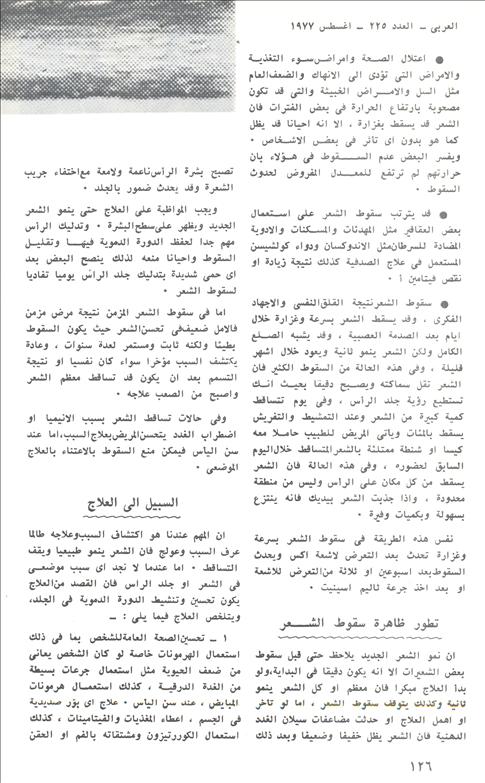 العربى ــ العدد ٢٢٥ ــ اغسطس ١٩٧٧
● اعتلال الصحة وامراض سوء التغذية
والامراض التى تؤدى الى الانهاك والضعف العام
مثل السل والامراض الخبيثة والتى قد تكون
مصحوبة بارتفاع الحرارة فى بعض الفترات فان
الشعر قد يسقط بغزارة ، الا انه احيانا قد يظل
كما هو بدون اى تأثر فى بعض الاشخاص ·
ويفسر البعض عدم السقوط فى هؤلاء بان
حرارتهم لم ترتفع للمعدل المفروض لحدوث
السقوط ·
● قد يترتب سقوط الشعر على استعمال
بعض العقاقير مثل المهدئات والمسكنات والادوية
المضادة للسرطان مثل الاندوكسان ودواء كولشيسن
المستعمل فى علاج الصدفية كذلك نتيجة زيادة او
نقص فيتامين أ ·
● سقوط الشعر نتيجة القلق النفسى والاجهاد
الفكرى ، وقد يسقط الشعر بسرعة وغزارة خلال
ايام بعد الصدمة العصبية ، وقد يشبه الصلع
الكامل ولكن الشعر ينمو ثانية ويعود خلال اشهر
قليلة ، وفى هذه الحالة من السقوط الكثير فان
الشعر تقل سماكته ويصبح دقيقا بحيث انك
تستطيع رؤية جلد الراس ، وفى يوم تتساقط
كمية كبيرة من الشعر وعند التمشيط والتفريش
يسقط بالمئات ويأتى المريض للطبيب حاملا معه
كيسا او شنطة ممتلئة بالشعر المتساقط خلال اليوم
السابق لحضوره ، وفى هذه الحالة فان الشعر
يسقط من كل مكان على الراس وليس من منطقة
معدودة ، واذا جذبت الشعر بيديك فانه ينتزع
بسهولة وبكميات وفيرة ·
نفس هذه الطريقة فى سقوط الشعر بسرعة
وغزارة تحدث بعد التعرض لاشعة اكس ويحدث
السقوط بعد اسبوعين او ثلاثة من التعرض للاشعة
او بعد اخذ جرعة ثاليم اسيتيت ·
تطور ظاهرة سقوط الشعر
ان نمو الشعر الجديد يلاحظ حتى قبل سقوط
بعض الشعيرات الا انه يكون دقيقا فى البداية،ولو
بدأ العلاج مبكرا فان معظم او كل الشعر ينمو
ثانية وكذلك يتوقف سقوط الشعر ، اما لو تأخر
او اهمل العلاج او حدثت مضاعفات سيلان الغدد
الدهنية فان الشعر يظل خفيفا وضعيفا وبعد ذلك
تصبح بشرة الرأس ناعمة ولامعة مع اختفاء جريب
الشعرة وقد يحدث ضمور بالجلد ·
ويجب المواظبة على العلاج حتى ينمو الشعر
الجديد ويظهر على سطح البشرة · وتدليك الرأس
مهم جدا لحفظ الدورة الدموية فيها وتقليل
السقوط واحيانا منعه لذلك ينصح البعض بعد
اى حمى شديدة بتدليك جلد الرأس يوميا تفاديا
لسقوط الشعر ·
اما فى سقوط الشعر المزمن نتيجة مرض مزمن
فالامل ضعيف فى تحسن الشعر حيث يكون السقوط
بطيئا ولكنه ثابت ومستمر لعدة سنوات ، وعادة
يكتشف السبب مؤخرا سواء كان نفسيا او نتيجة
التسمم بعد ان يكون قد تساقط معظم الشعر
واصبح من الصعب علاجه ·
وفى حالات تساقط الشعر بسبب الانيميا او
اضطراب الغدد يتحسن المريض بعلاج السبب،اما عند
سن اليأس فيمكن منع السقوط بالاعتناء بالعلاج
الموضعى ·
السبيل الى العلاج
ان المهم عندنا هو اكتشاف السبب وعلاجه طالما
عرف السبب وعولج فان الشعر ينمو طبيعيا ويقف
التساقط · اما عندما لا نجد اى سبب موضعى
فى الشعر او جلد الراس فان القصد من العلاج
يكون تحسين وتنشيط الدورة الدموية فى الجلد،
ويتلخص العلاج فيما يلى : ــ
١ ــ تحسين الصحة العامة للشخص بما فى ذلك
استعمال الهرمونات خاصة لو كان الشخص يعانى
من ضعف الحيوية مثل استعمال جرعات بسيطة
من الغدة الدرقية ، كذلك استعمال هرمونات
المبايض ، عند سن اليأس · علاج اى بؤر صديدية
فى الجسم ، اعطاء المغذيات والفيتامينات ، كذلك
استعمال الكورتيزون ومشتقاته بالفم او الحقن
١٢٦